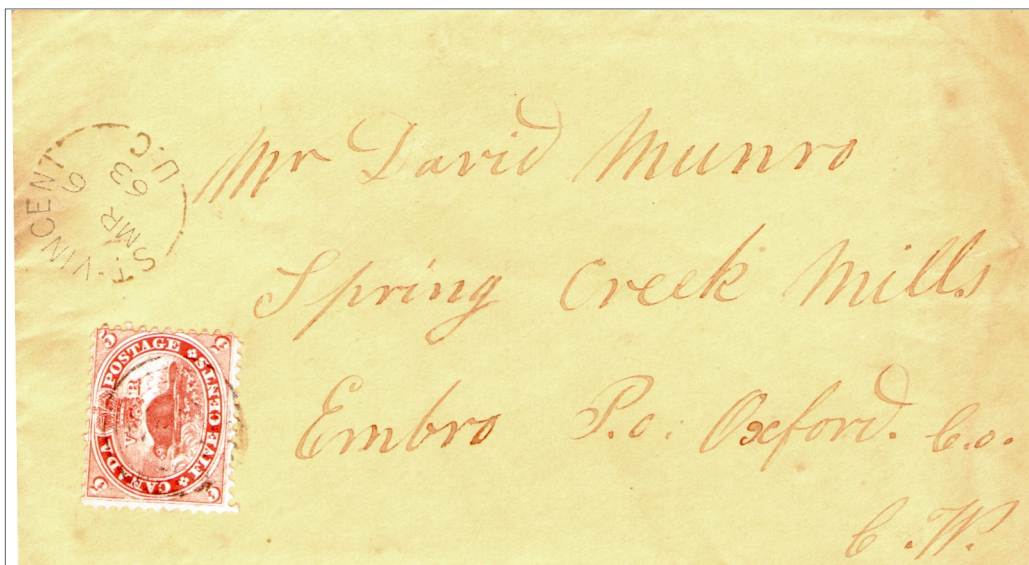 ST. VINCENT
U.C.
MR 6
63
Mr David Munro
Spring Creek Mills
Embro P.o. Oxford. Co.
C.W.
CANADA POSTAGE
FIVE CENTS
V R
5 5
5 5